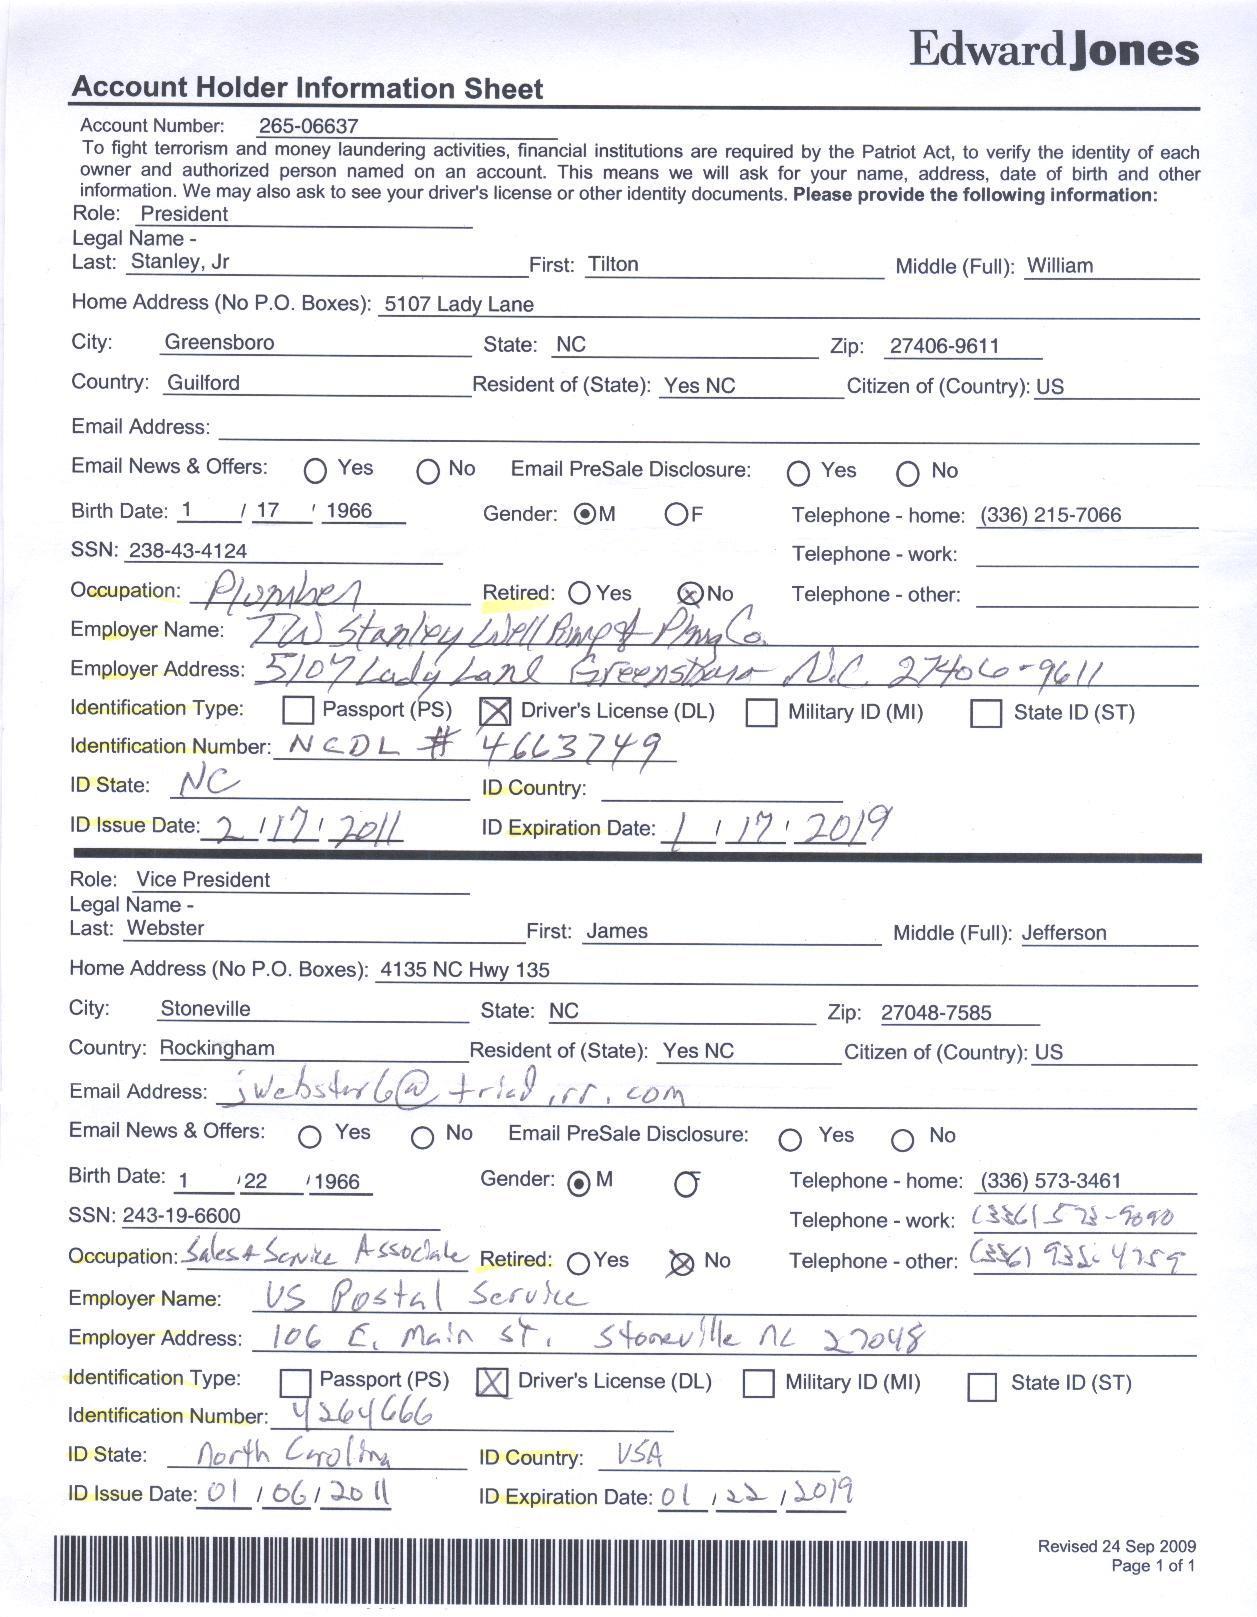 Edward Jones
Account Holder Information Sheet
Account Number: 265-06637
To fight terrorism and money laundering activities, financial institutions are required by the Patriot Act, to verify the identity of each
owner and authorized person named on an account. This means we will ask for your name, address, date of birth and other
information. We may also ask to see your driver's license or other identity documents. Please provide the following information:
Role: President
Legal Name -
Last: Stanley, Jr First: Tilton Middle (Full): William
Home Address (No P.O. Boxes): 5107 Lady Lane
City: Greensboro State: NC Zip: 27406-9611
Country: Guilford Resident of (State): Yes NC Citizen of (Country): US
Email Address:
Email News & Offers: Yes No Email PreSale Disclosure: Yes No
Birth Date: 1 / 17 / 1966 Gender: M F Telephone - home: (336) 215-7066
SSN: 238-43-4124 Telephone - work:
Occupation: Plumber Retired: Yes No Telephone - other:
Employer Name: TW Stanley Well Pump & Plmg Co.
Employer Address: 5107 Lady Lane Greensboro N.C. 27406-9611
Identification Type: Passport (PS) Driver's License (DL) Military ID (MI) State ID (ST)
Identification Number: NCDL # 4663749
ID State: NC ID Country:
ID Issue Date: 2 / 17 / 2011 ID Expiration Date: 1 / 17 / 2019
Role: Vice President
Legal Name -
Last: Webster First: James Middle (Full): Jefferson
Home Address (No P.O. Boxes): 4135 NC Hwy 135
City: Stoneville State: NC Zip: 27048-7585
Country: Rockingham Resident of (State): Yes NC Citizen of (Country): US
Email Address: jwebster6@triad.rr.com
Email News & Offers: Yes No Email PreSale Disclosure: Yes No
Birth Date: 1 / 22 / 1966 Gender: M Telephone - home: (336) 573-3461
SSN: 243-19-6600 Telephone - work: (336) 573-9090
Occupation: Sales & Service Associate Retired: Yes No Telephone - other: (336) 935-4759
Employer Name: US Postal Service
Employer Address: 106 E. Main St. Stoneville NC 27048
Identification Type: Passport (PS) Driver's License (DL) Military ID (MI) State ID (ST)
Identification Number: 4264666
ID State: North Carolina ID Country: USA
ID Issue Date: 01 / 06 / 2011 ID Expiration Date: 01 / 22 / 2019
Revised 24 Sep 2009
Page 1 of 1